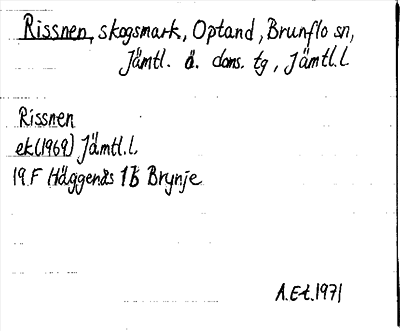 Rissnen, skogsmark, Optand, Brunflo sn,
Jämtl. ö. doms. tg, Jämtl.l
Rissnen
ek(1969) Jämtl.l.
19 F Häggenås 1b Brynje
A.Et.1971